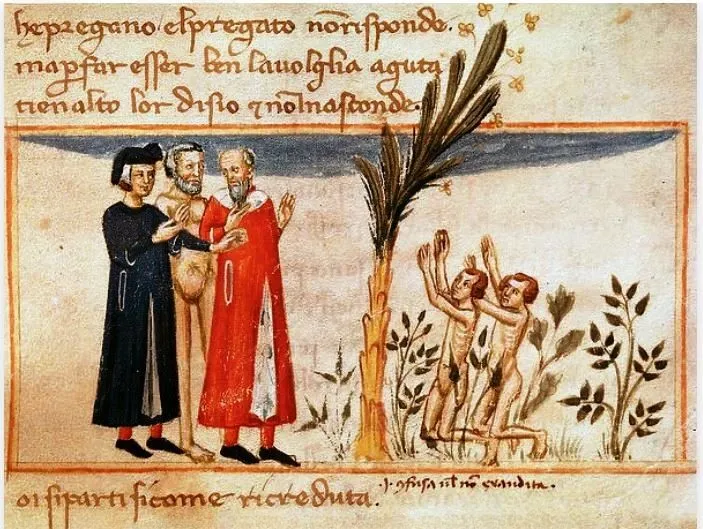 hepregano elpregato nõrisponde.
maꝑfar esser ben lauolglia aguta
tien alto lor disio ⁊ nõlnasconde.
oi sipartisicome ricreduta.
.i. ꝯfusa ul' nõ exaudita.